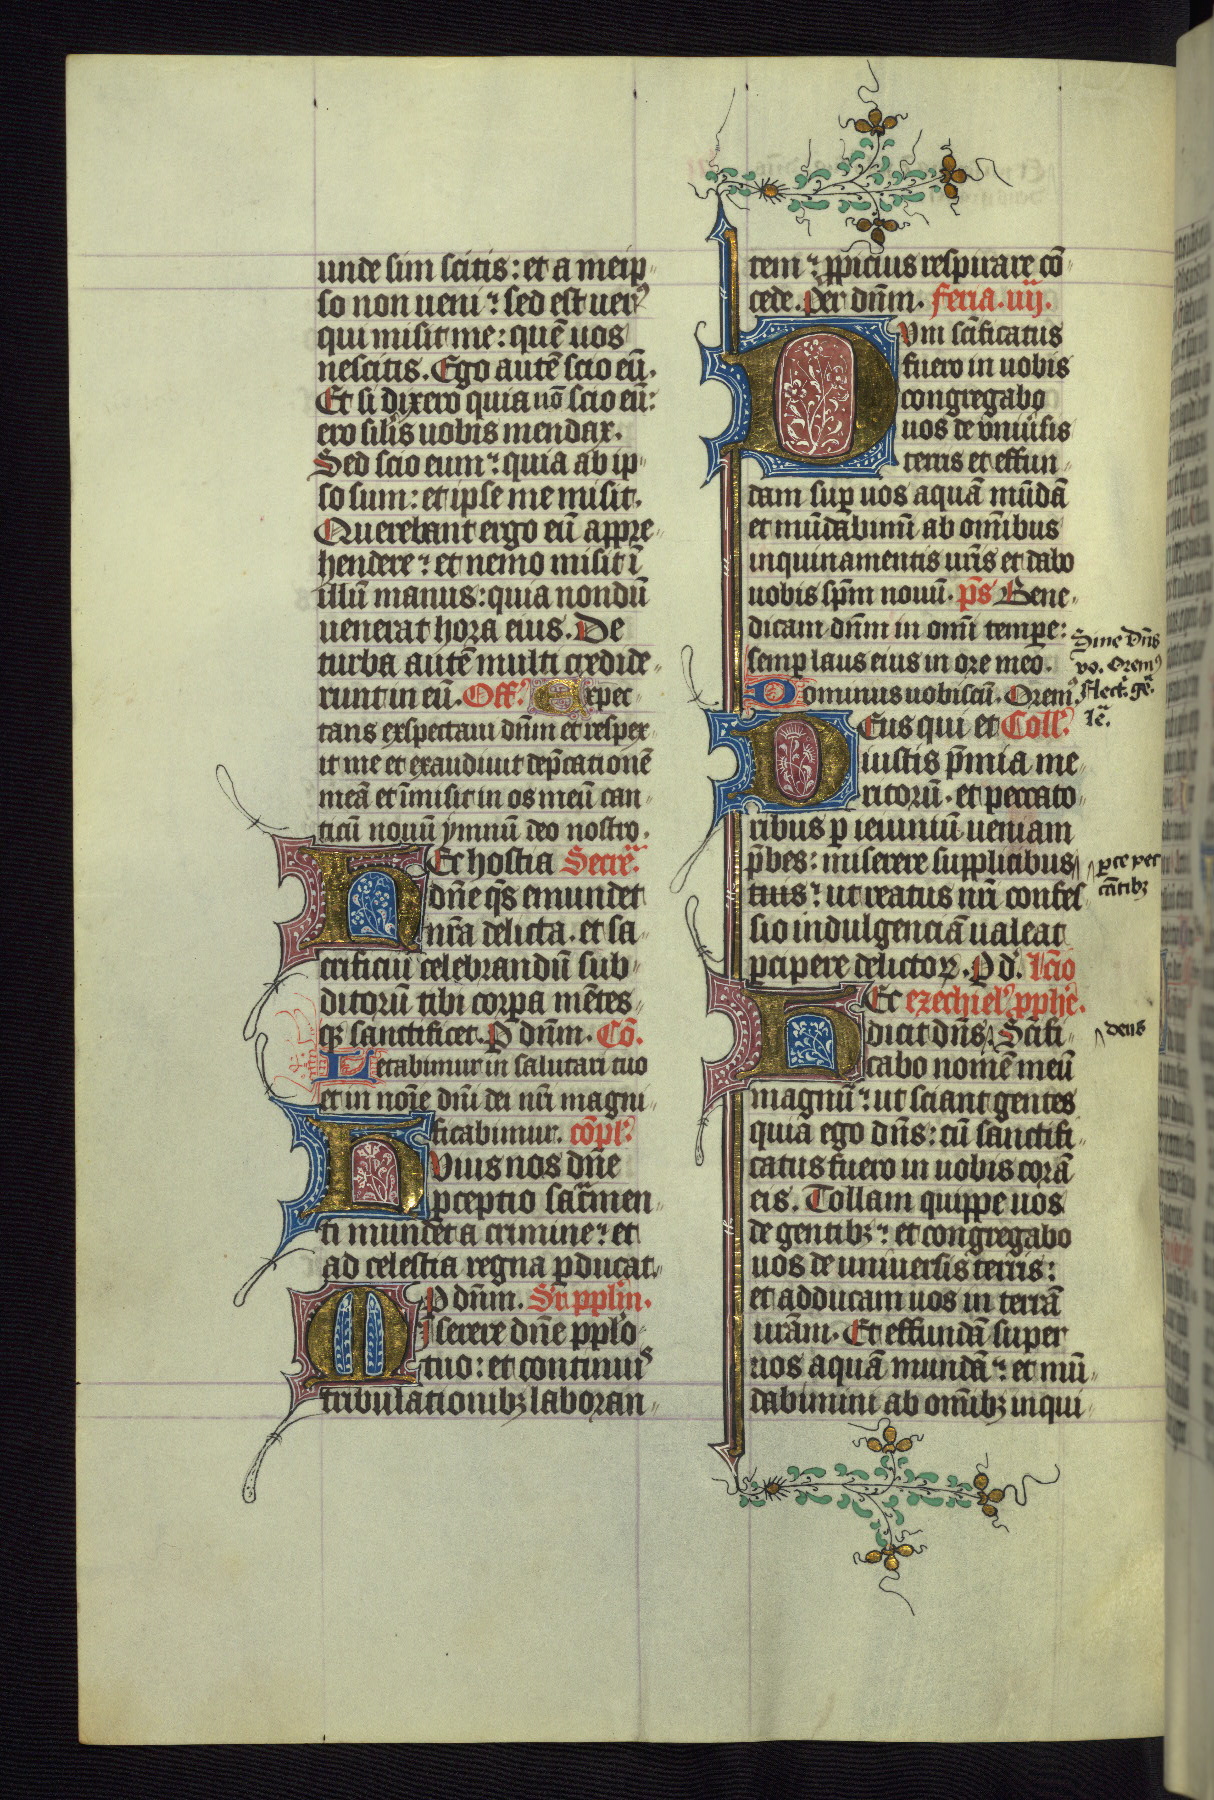 unde sim scitis: et a meip-
so non ueni: sed est uerꝰ
qui misit me: quē uos
nescitis. Ego autē scio eū.
Et si dixero quia nō scio eū:
ero silis uobis mendax.
Sed scio eum: quia ab ip-
so sum: et ipse me misit.
Querebant ergo eū appre-
hendere: et nemo misit ī
illū manus: quia nondū
uenerat hora eius. De
turba autē multi credide-
runt in eū. Off. Expec-
tans exspectaui dnm et respex-
it me et exaudiuit dep̄cationē
meā et īmisit in os meū can-
ticū nouū ymnū deo nostro.
Hec hostia Secre.
dn̄e qs emundet
nr̄a delicta. et sa-
crificiū celebrandū sub-
ditorū tibi corpa mētes-
qꝫ sanctificet. P dnm. Cō.
Letabimur in salutari tuo
et in nore dn̄i dei nr̄i magni-
ficabimur. cōpl.
Huius nos dn̄e
pceptio sacr̄amen-
ti mundet a crimine: et
ad celestia regna pducat.
P dnm. Sr pplm.
Miserere dn̄e pplo
tuo: et continuis
tribulationibꝫ laboran-
tem: ppicius respirare cō-
cede. Per dnm. feria. iiij.
Dum sc̄ificatus
fuero in uobis
congregabo
uos de vniuersis
terris et effun-
dam sup uos aquā mūdā
et mūdabimī ab omībus
inquinamentis urīs et dabo
uobis spm nouū. ps Bene-
dicam dnm in omī tempe:
semp laus eius in ore meo.
Dominus uobiscū. Oremꝰ
Sine Dn̄s
vo. Oremꝰ
flect. ge.
le.
Deus qui et Coll.
iustis p̄mia me-
ritorū. et peccato-
ribus p ieiuniū ueniam
p̄bes: miserere supplicibus
pce pec
cātibꝫ
tuis: ut reatus nr̄i confes-
sio indulgenciā ualeat
pcipere delictoꝝ. P d. lcīo
Hec ezechielꝰ pphe.
dicit dn̄s. Sc̄ifi-
deus
cabo nomē meū
magnū: ut sciant gentes
quia ego dn̄s: cū sanctifi-
catus fuero in uobis corā
eis. Tollam quippe uos
de gentibꝫ: et congregabo
uos de uniuersis terris:
et adducam uos in terrā
urām. Et effundā super
uos aquā mundā: et mū-
dabimini ab omībꝫ inqui-